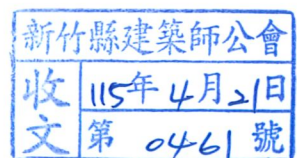 新竹縣建築師公會
收文
115年4月21日
第 0461 號